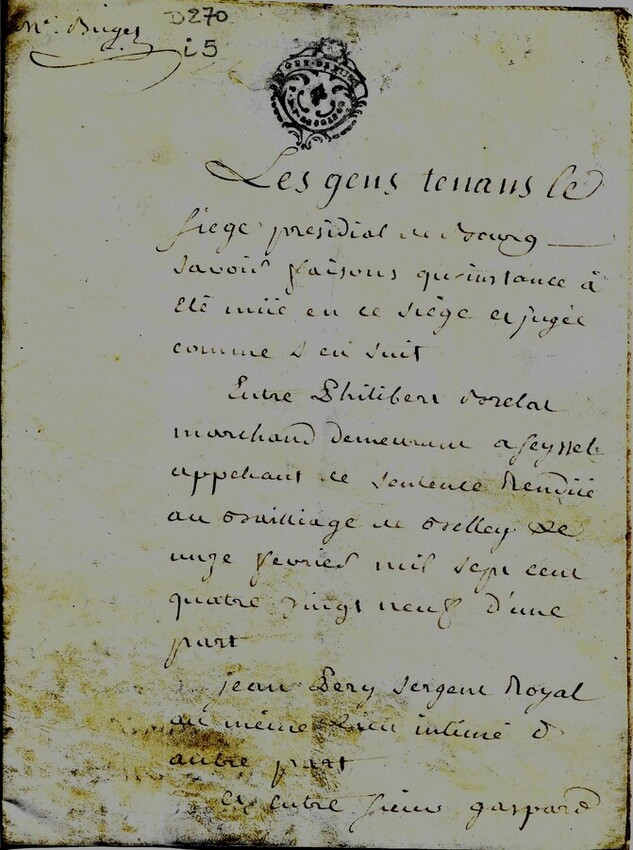 Mr. Buget
D270
i5
Les gens tenans le
siege presidial de Bourg
savoir faisons qu'instance à
été muë en ce siège et jugée
comme s'en suit
Entre Philibert Brelat
marchand demeurant a seyssel
appellant de sentence Renduë
au Bailliage de Belley Le
unze fevrier mil sept cent
quatre vingt neuf d'une
part
jean Pery sergent Royal
au même Lieu intimé d
autre part
et entre sieur gaspard